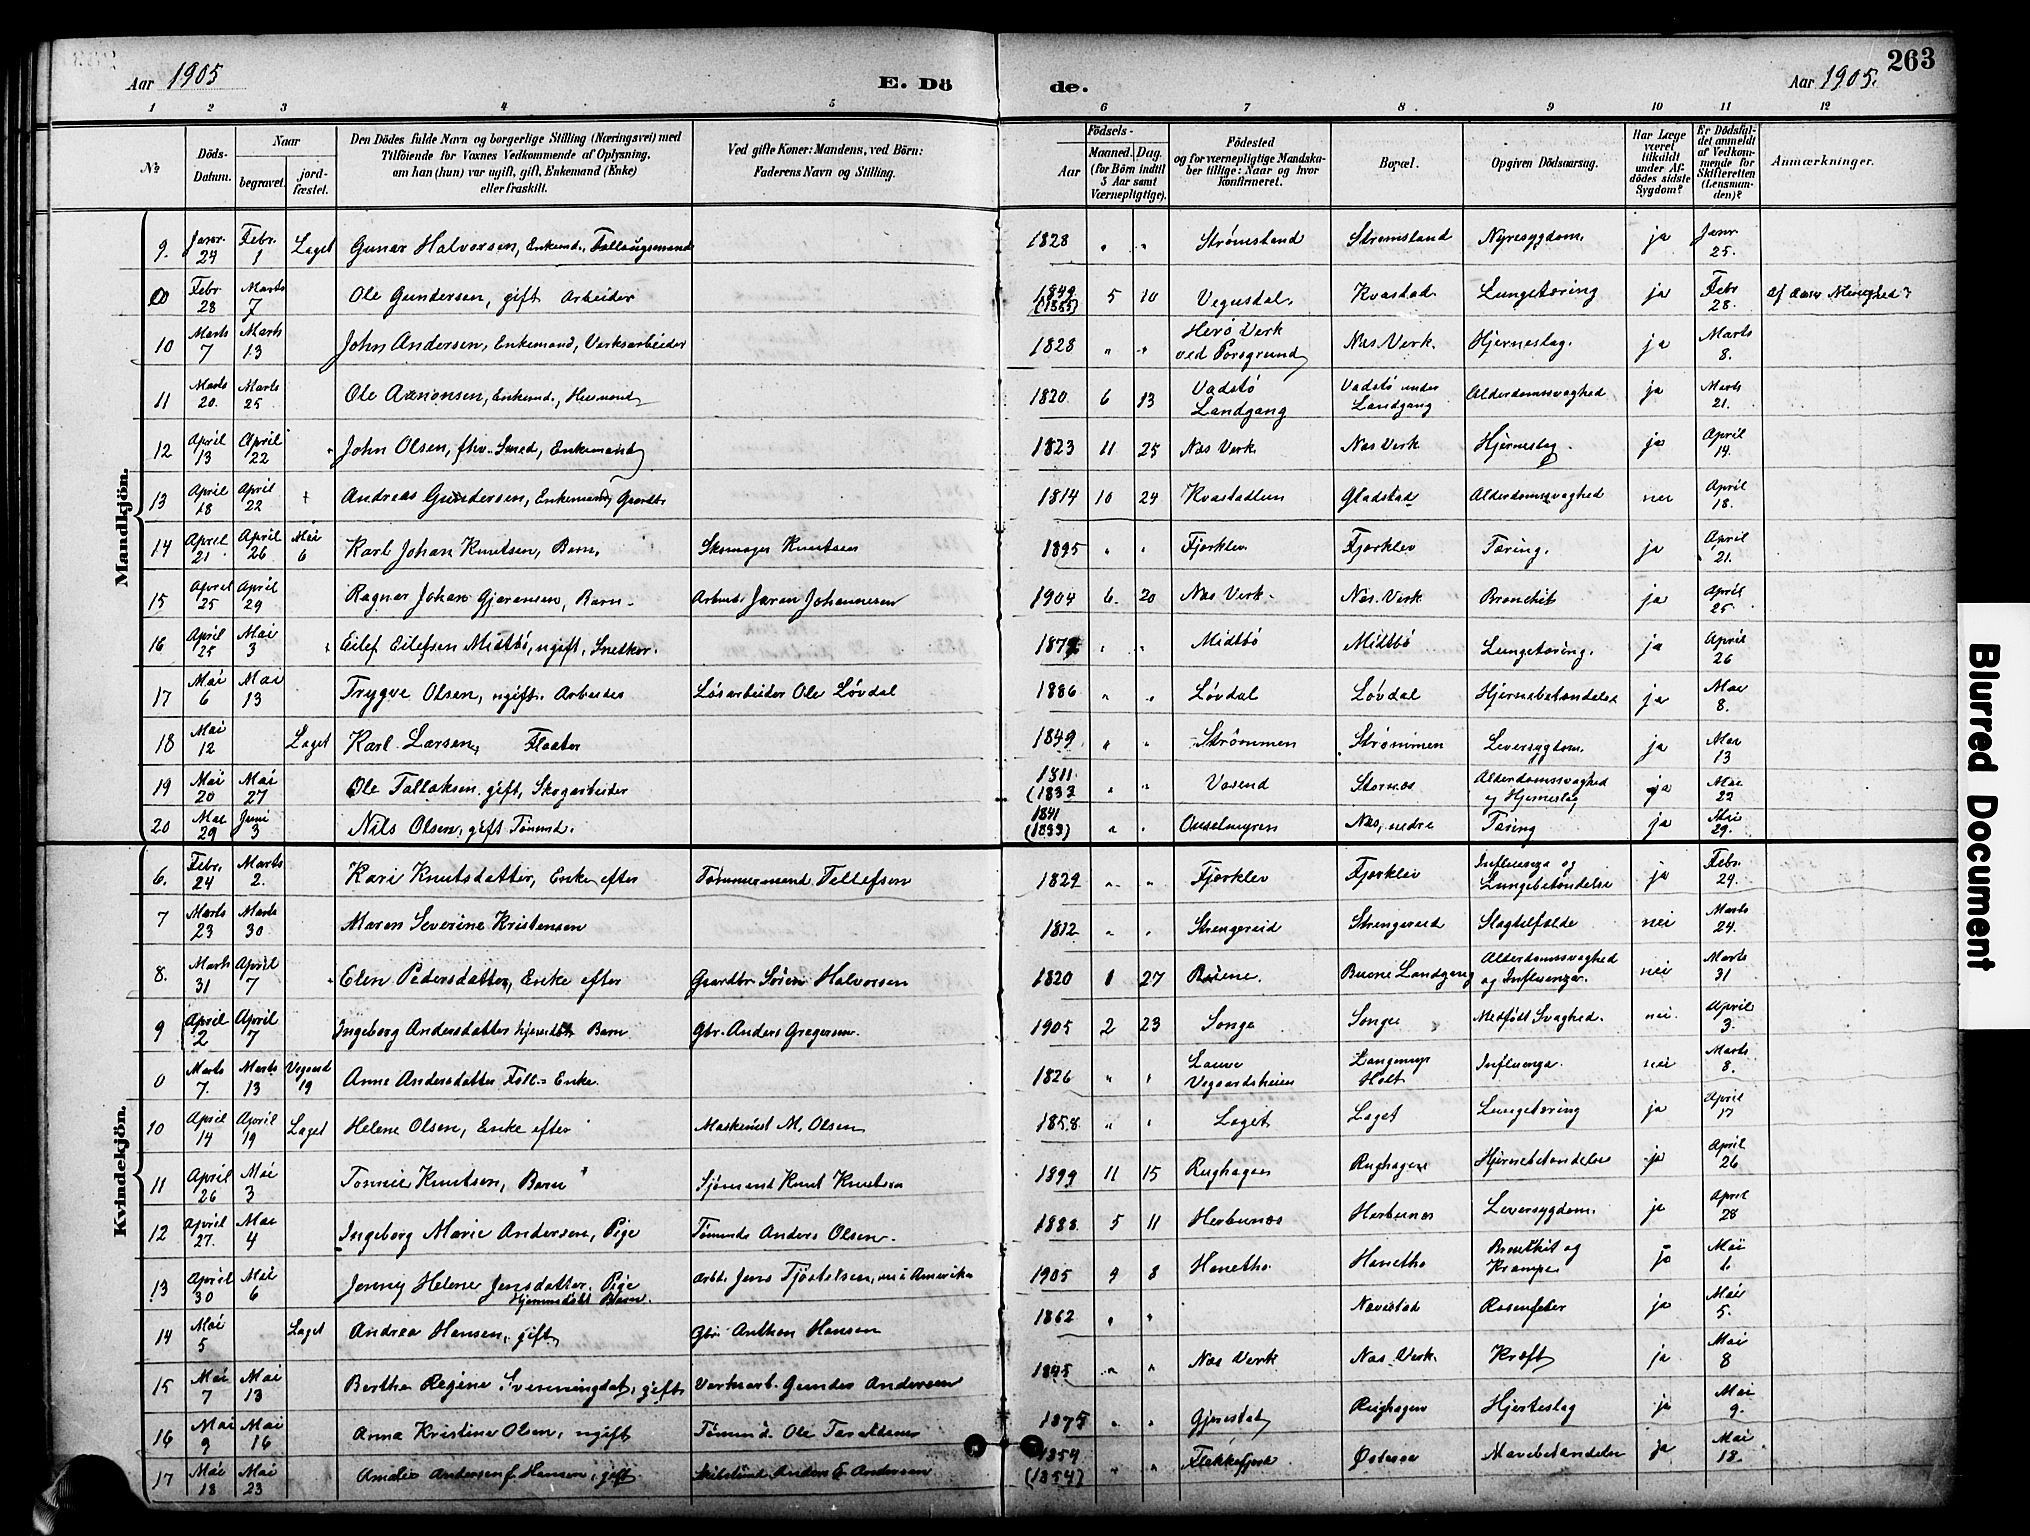 263
Aar 1905
E. Dö
de.
Aar 1905.
1 2 3 4 5 6 7 8 9 10 11 12
No
Döds-Datum.
Naar
begravet.
jord-fæstet.
Den Dödes fulde Navn og borgerlige Stilling (Næringsvei) med
Tilföiende for Voxnes Vedkommende af Oplysning,
om han (hun) var ugift, gift, Enkemand (Enke)
eller fraskilt.
Ved gifte Koner: Mandens, ved Börn:
Faderens Navn og Stilling.
Födsels-
Aar
Maaned. Dag.
(for Börn indtil
5 Aar samt
Værnepligtige).
Födested
og for værnepligtige Mandska-
ber tillige: Naar og hvor
konfirmeret.
Bopæl.
Opgiven Dödsaarsag.
Har Læge
været
tilkaldt
under Af-
dödes sidste
Sygdom?
Er Dödsfal-
det anmeldt
af Vedkom-
mende for
Skifteretten
(Lensman-
den)?
Anmærkninger.
Mandkjön.
9. Janr. 24 Febr. 1 Laget Gunar Halvorsen, Enkemd., 1828 " " Strømsland Strømsland Nyresygdom. ja Janr. 25.
Febr 28 Marts 7 Ole Gundersen, gift Arbeider 1849 5 10 Vegusdal. Kvastad Lungetæring ja Febr 28.
10 Marts 7 Marts 13 John Andersen, Enkemand, Verksarbeider 1828 " " Herø Verk ved Porsgrund Næs Verk. Hjerneslag. ja Marts 8.
11 Marts 20. Marts 25 Ole Aanonsen, Enkemd., 1820 6 13 Vadstö Landgang Vadstö under Landgang Alderdomssvaghed ja Marts 21.
12 April 13 April 22 John Olsen, fhv. Smed, Enkemand 1823 11 25 Næs Verk Næs Verk Hjerneslag. ja April 14.
13 April 18 April 22 + Andreas Gundersen, Enkemand, Gaardbr. 1814 10 24 Kvastadlien Gladstad Alderdomssvaghed nei April 18.
14 April 21 April 26 Mai 6 Karl Johan Knutsen, Barn, Skomager Knutsen 1895 " " Fjærklev Fjærklev Tæring. ja April 21.
15 April 25 April 29 Ragnar Johan Gjøransen, Barn Arbeid. Jøran Johannesen 1904 6. 20 Næs Verk Næs Verk Bronchit ja April 25.
16 April 25 Mai 3 Eilef Eilefsen Midtbö, ugift, Snedker. " " Midtbö Midtbö Lungetæring. ja April 26
17 Mai 6 Mai 13 Trygve Olsen, ugift. Arbeider Løsarbeider Ole Løvdal 1886 " " Løvdal Løvdal Hjernebetændelse ja Mai 8.
18 Mai 12 Laget Karl Larsen, Fløter 1849 " " Strömmen Strömmen Leversygdom. ja Mai 13
19 Mai 20 Mai 27 Ole Tallaksen. gift, Skogarbeider 1811 (1833 " " Vasend Stornæs Alderdomssvaghed og Hjerneslag ja Mai 22
20 Mai 29 Juni 3 Nils Olsen, gift Tømmd. 1841 (1833) " " Næs, nedre Tæring ja Mai 29.
Kvindekjön.
6. Febr. 24 Marts 2. Kari Knutsdatter, Enke efter Tømmermand Tellefsen 1829 " " Fjærklev Fjærklev Influenza og Lungebetændelse ja Febr. 24.
7 Marts 23 Marts 30 Maren Severine Kristensen 1812 " " Strengereid Strengereid Slagtilfælde nei Marts 24.
8. Marts 31 April 7 Elen Pedersdatter, Enke efter Gaardbr. Sören Halvorsen 1820 1 27 Buene. Buene Landgang Alderdomssvaghed og Influenza. nei Marts 31
9 April 2 April 7 Ingeborg Andersdatter hjemdöbt Barn Gbr. Anders Gregersen. 1905 2 23 Songe Songe Medfödt Svaghed. nei April 3.
0 Marts 7. Marts 13 Vegaard 19 Anne Andersdatter Enke. 1826 " " Vegaardsheien Langerup Holt Influenza. nei Marts 8.
10 April 14 April 19 Laget Helene Olsen, Enke efter Maskinist M. Olsen 1858. " " Laget Laget Lungetæring ja April 17
11 April 26 Mai 3 Tomine Knutsen, Barn Sjømand Knut Knutsen 1899 11 15 Rughagen Rughagen Hjernebetændelse ja April 26
12 April 27. Mai 4 Ingeborg Marie Andersen, Pige Tømmd. Anders Olsen. 1888. 5 11 Herbunæs Herbunæs Leversygdom. ja April 28
13 April 30 Mai 6 Jenny Helene Jensdatter, Pige Hjemmedöbt Barn. Arbd. Jens Tjöstelsen, nu i Amerika 1905 9 8 Hanetho Hanetho Bronchit og Krampe ja Mai 6
14 Mai 5 Laget Andrea Hansen, gift Gbr. Anthon Hansen 1862 " " Navestad Rosenfeber ja Mai 5.
15 Mai 7 Mai 13 Berthe Regine Svenningdat., gift Verksarb. Gunder Andersen 1845 " " Næs Verk Næs Verk. Kræft ja Mai 8
16 Mai 9 Mai 16 Anna Kristine Olsen, ugift Tømmd. Ole Taraldsen 1875 " " Gjerestad Rughagen Hjerteslag ja Mai 9.
17 Mai 18 Mai 23 Amalie Andersen f. Hansen, gift Anders E. Andersen 1854 (1854) " " Flekkefjord Østeraa Mavebetændelse ja Mai 18.
Blurred Document